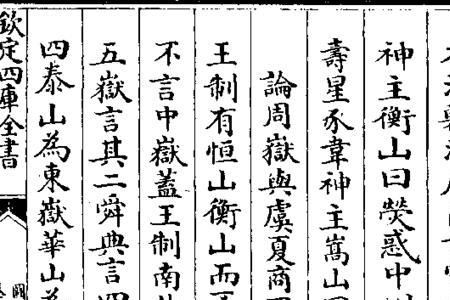 神主衡山曰熒惑中
壽星豕韋神主嵩山
論周嶽與虞夏商
王制有恒山衡山而
不言中嶽蓋王制南
五嶽言其二舜典言四
四泰山為東嶽華山為
欽定四庫全書